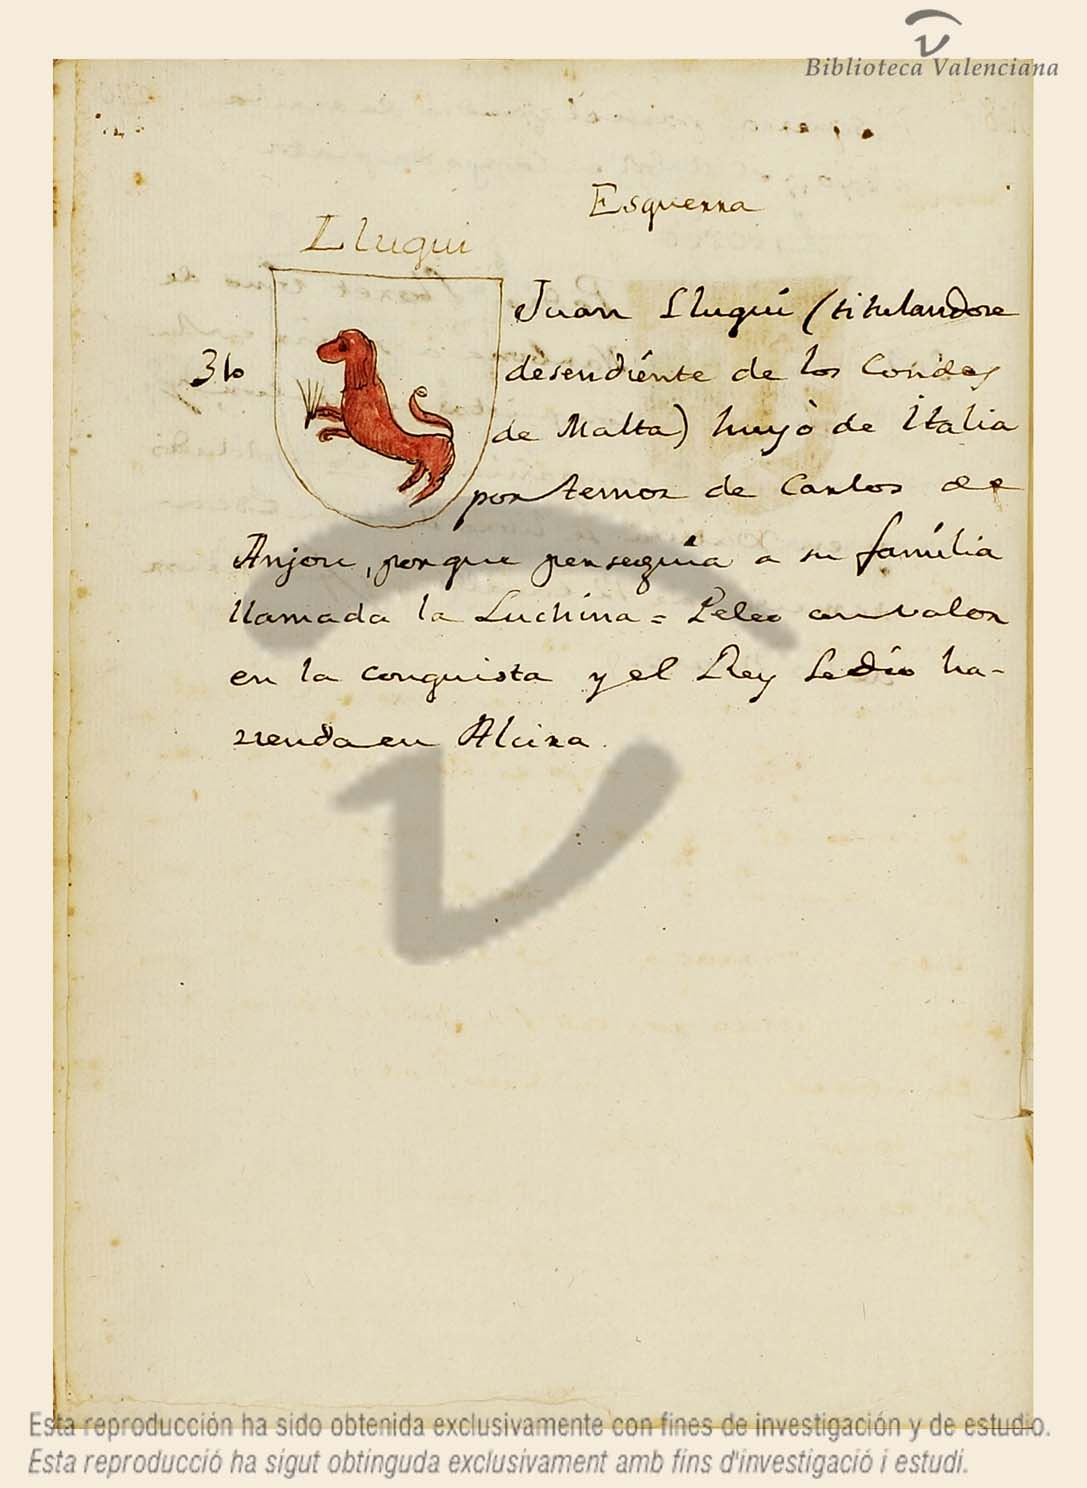 Biblioteca Valenciana
Esquerra
Lluqui
310
Juan Lluqui (titulandose
desendiente de los Condes
de Malta) huyò de Italia
por temor de Carlos de
Anjou, porque perseguia a su familia
llamada la Luchina = Peleo con valor
en la conquista y el Rey le dio ha-
zienda en Alcira.
Esta reproducción ha sido obtenida exclusivamente con fines de investigación y de estudio.
Esta reproducció ha sigut obtinguda exclusivament amb fins d'investigació i estudi.